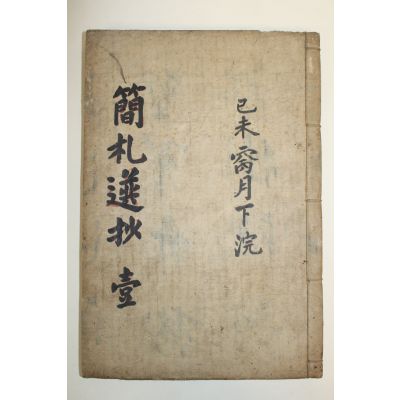 己未月下浣
簡札選抄 壹